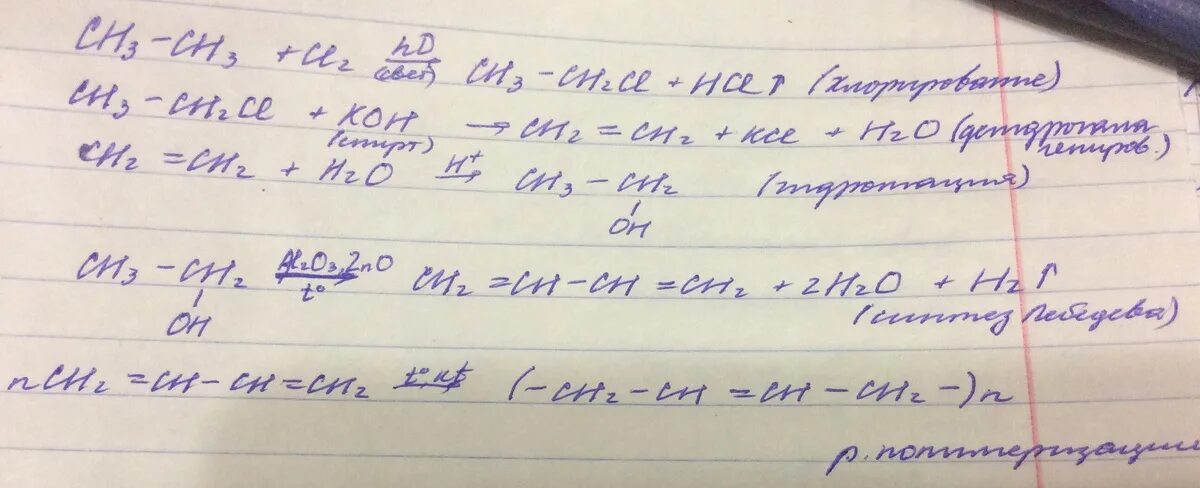 CH₃ – CH₃ + Cl₂ hν (свет) CH₃ – CH₂Cl + HCl↑ (хлорирование)
CH₃ – CH₂Cl + KOH (спирт) → CH₂ = CH₂ + KCl + H₂O (дегидрогалогениров.)
CH₂ = CH₂ + H₂O H⁺→ CH₃ – CH₂ (гидротация)
OH
CH₃ – CH₂ Al₂O₃, ZnO t° → CH₂ = CH – CH = CH₂ + 2H₂O + H₂↑
OH (синтез Лебедева)
nCH₂ = CH – CH = CH₂ t°, kt → (– CH₂ – CH = CH – CH₂ –)n
р. полимеризации